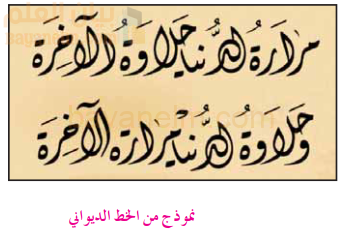 مرارة الدنيا حلاوة الآخرة
وحلاوة الدنيا مرارة الآخرة
نموذج من الخط الديواني